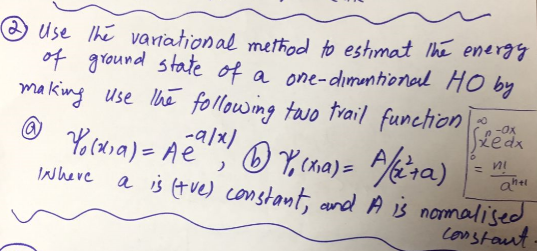 ② Use the variational method to estimat the energy
of ground state of a one-dimentional HO by
making use the following two trail function
ⓐ Ψ₀(x,a) = A e^{-a|x|}, ⓑ Ψ₀(x,a) = A/(x²+a)
∫₀^∞ xⁿ e^{-ax} dx
= n!/a^{n+1}
Where a is (+ve) constant, and A is normalised
constant.